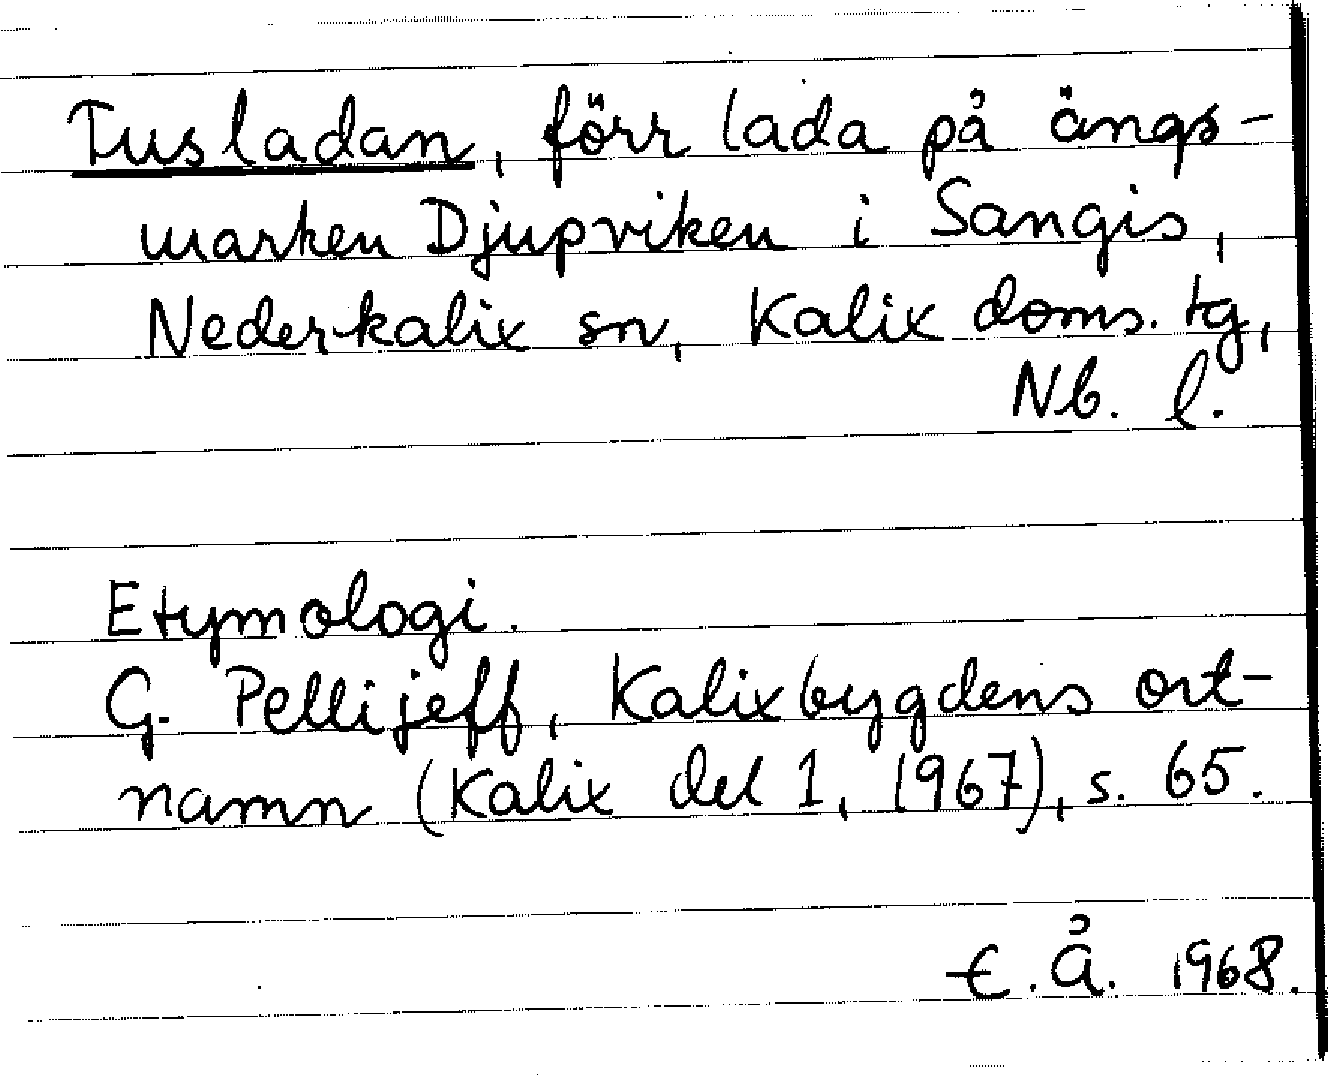 Tusladan, förr lada på ängs-
marken Djupviken i Sangis,
Nederkalix sn, Kalix doms. tg,
Nb. l.
Etymologi.
G. Pellijeff, Kalixbygdens ort-
namn (Kalix del 1, 1967), s. 65.
E.Å. 1968.